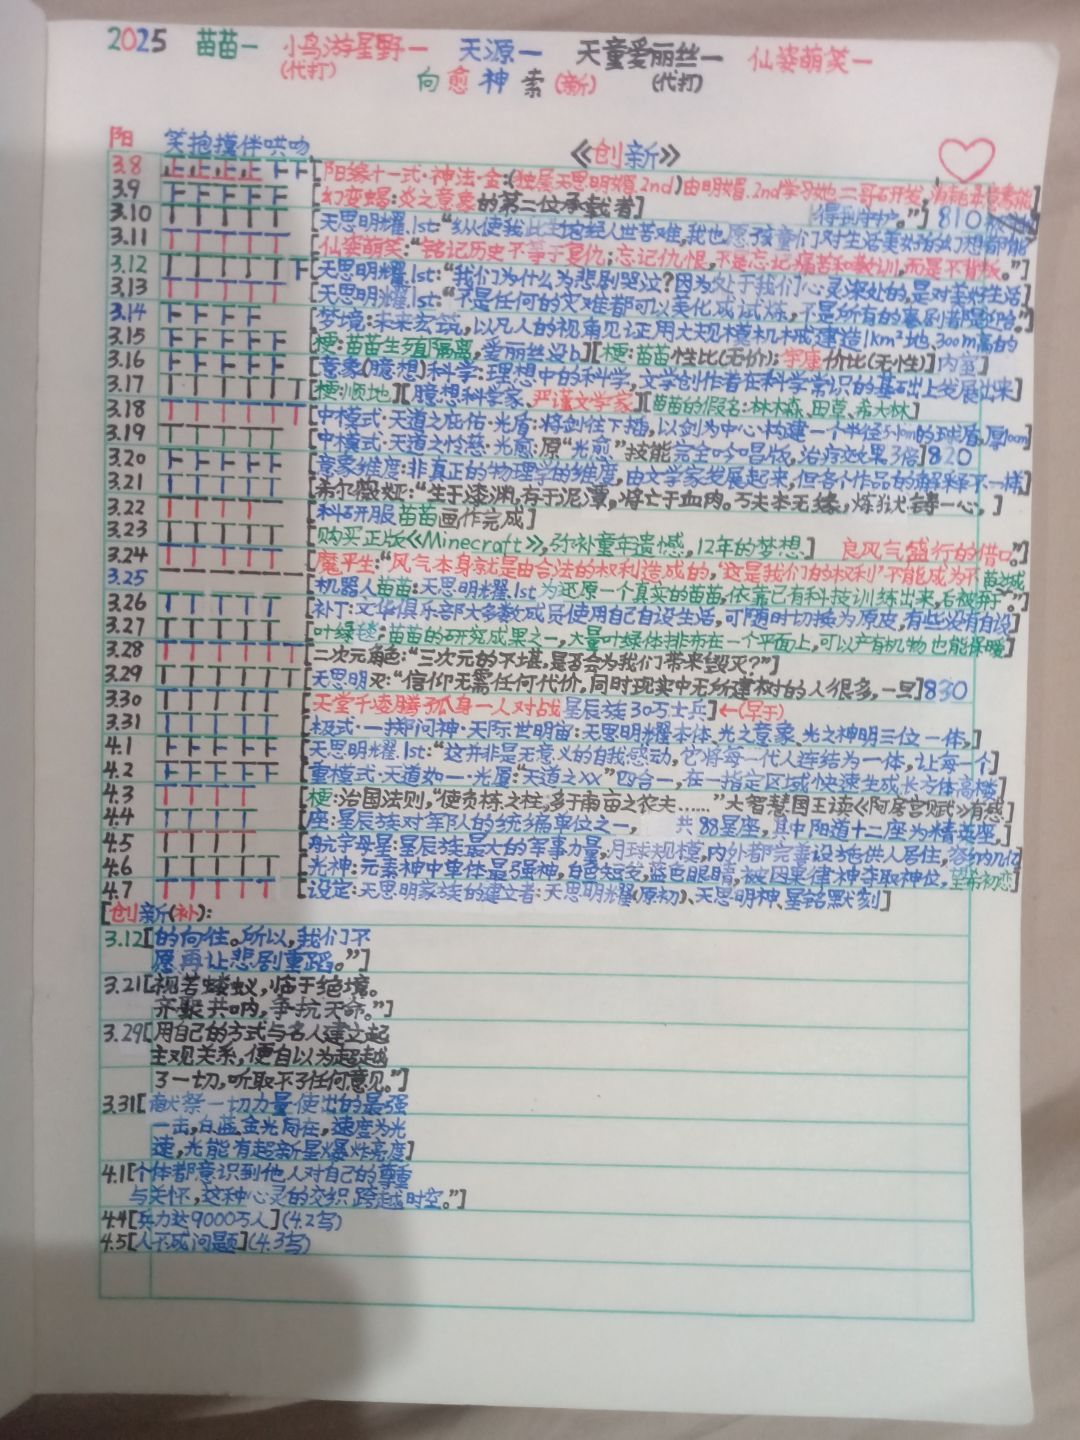 2025 苗苗一 小鸟游星野一 天源一 天童爱丽丝一 仙姿萌笑一
(代打) 向愈神索(新) (代打)
阳 笑抱摸伴哄吻 《创新》
3.8 [阳缘十一式·神法·金:(独属天思明耀.2nd)由明耀.2nd学习她二哥研发,
3.9 幻变蝎:炎之意象的第二位承载者] 得到守护。”] 810
3.10 [天思明耀.1st:“纵使我此生抱轻人世苦难,我也愿孩童们对生活美好的幻想都能
3.11 [仙姿萌笑:“铭记历史不等于复仇;忘记仇恨,不是忘记痛苦和教训,而是不背叛。”]
3.12 [天思明耀.1st:“我们为什么为悲剧哭泣?因为处于我们心灵深处的,是对美好生活
3.13 [天思明耀.1st:“不是任何的灾难都可以美化成试炼,不是所有的悲剧都是史诗。”]
3.14 [梦境:未来宏筑,以凡人的视角见证用大规模机械建造1km²地、300m高的
3.15 [梗:苗苗生殖隔离,爱丽丝必b][梗:苗苗性比(无价);宇康价比(无性)]内室]
3.16 [意象(臆想)科学:理想中的科学,文学创作者在科学常识的基础上发展出来]
3.17 [梗:顺地][臆想科学家、严谨文学家][苗苗的假名:林木森、田草、希大林]
3.18 [中模式·天道之庇佑·光盾:将剑往下插,以剑为中心构建一个半径5km的球盾,厚100m]
3.19 [中模式·天道之怜慈·光愈:原“光愈”技能完全吟唱版,治疗效果3倍]820
3.20 [意象维度:非真正的物理学的维度,由文学家发展起来,但各个作品的解释不一样]
3.21 [希尔薇娅:“生于漆渊,存于泥潭,将亡于血肉。丐夫本无缘,炼狱铸一心,]
3.22 [科研服苗苗画作完成]
3.23 [购买正版《Minecraft》,弥补童年遗憾,12年的梦想.] 良风气盛行的借口。”]
3.24 [魔平生:“风气本身就是由合法的权利造成的,‘这是我们的权利’不能成为不
3.25 [机器人苗苗:天思明耀.1st为还原一个真实的苗苗,依靠已有科技训练出来,后被弃]
3.26 [补丁:文华俱乐部大多数成员使用自己自设生活,可随时切换为原皮,有些没有自设]
3.27 [叶绿毯:苗苗的研究成果之一,大量叶绿体排布在一个平面上,可以产有机物也能保暖]
3.28 [二次元角色:“三次元的不堪,是否会为我们带来毁灭?”]
3.29 [天思明灭:“信仰无需任何代价,同时现实中无所建树的人很多,一旦]830
3.30 [天堂千凌腾孤身一人对战星辰族30万士兵]←(早于)
3.31 [极式·一掷问神·天际世明宙:天思明耀本体、光之意象、光之神明三位一体,]
4.1 [天思明耀.1st:“这并非是无意义的自我感动,它将每一代人连结为一体,让每一个]
4.2 [重模式·天道如一·光厦:“天道之XX”四合一,在一指定区域快速生成长方体高楼]
4.3 [梗:治国法则,“使负栋之柱,多于南亩之农夫……”大智慧国王读《阿房宫赋》有感]
4.4 [座:星辰族对军队的统编单位之一, 共88星座,其中阳道十二座为精英座,]
4.5 [航宇母星:星辰族最大的军事力量,月球规模,内外都完善设施供人居住,容纳几亿]
4.6 [光神:元素神中单体最强神,白色短发,蓝色眼睛,被因果律神夺取神位,望希初恋]
4.7 [设定:天思明家族的建立者:天思明耀(原初)、天思明神、星铭默刻]
[创新(补):
3.12[的向往。所以,我们不
愿再让悲剧重蹈。”]
3.21[视若蝼蚁,临于绝境。
齐聚共呐,争抗天命。”]
3.29[用自己的方式与名人建立起
主观关系,便自以为超越
了一切,听取不了任何意见。”]
3.31[献祭一切力量使出的最强
一击,白蓝金光局在,速度为光
速,光能有超新星爆炸亮度]
4.1[个体都意识到他人对自己的尊重
与关怀,这种心灵的交织跨越时空。”]
4.4[兵力达9000万人](4.2写)
4.5[人不成问题](4.3写)